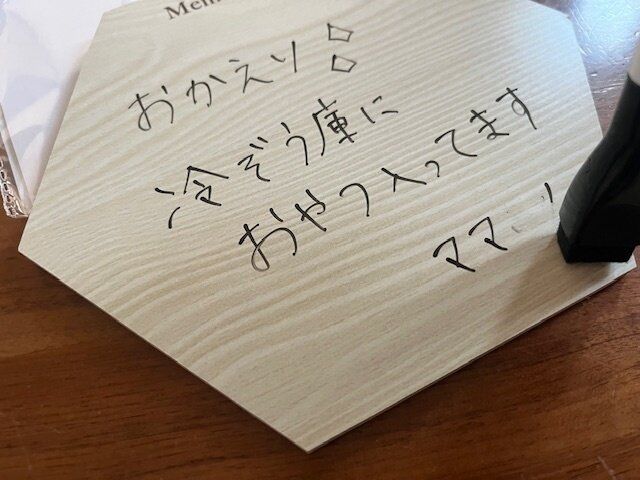 おかえり!
冷ぞう庫に
おやつ入ってます
ママ